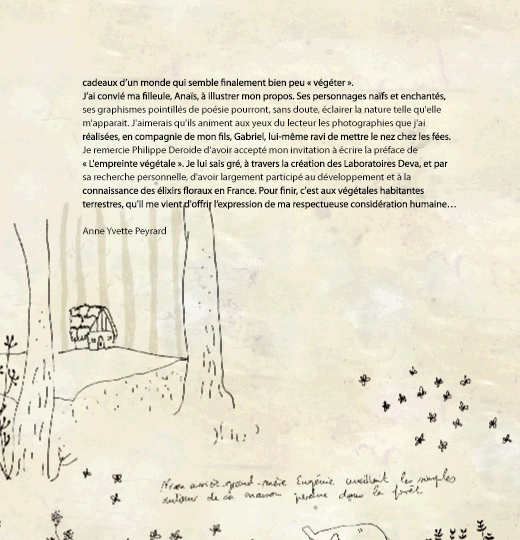 cadeaux d'un monde qui semble finalement bien peu « végéter ».
J'ai convié ma filleule, Anaïs, à illustrer mon propos. Ses personnages naïfs et enchantés,
ses graphismes pointillés de poésie pourront, sans doute, éclairer la nature telle qu'elle
m'apparait. J'aimerais qu'ils animent aux yeux du lecteur les photographies que j'ai
réalisées, en compagnie de mon fils, Gabriel, lui-même ravi de mettre le nez chez les fées.
Je remercie Philippe Deroide d'avoir accepté mon invitation à écrire la préface de
« L'empreinte végétale ». Je lui sais gré, à travers la création des Laboratoires Deva, et par
sa recherche personnelle, d'avoir largement participé au développement et à la
connaissance des élixirs floraux en France. Pour finir, c'est aux végétales habitantes
terrestres, qu'il me vient d'offrir l'expression de ma respectueuse considération humaine…
Anne Yvette Peyrard
arrière-grand-mère Eugénie cueillant les simples
autour de sa maison perdue dans la forêt.